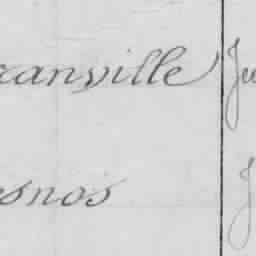 ranville Ju
esnos J